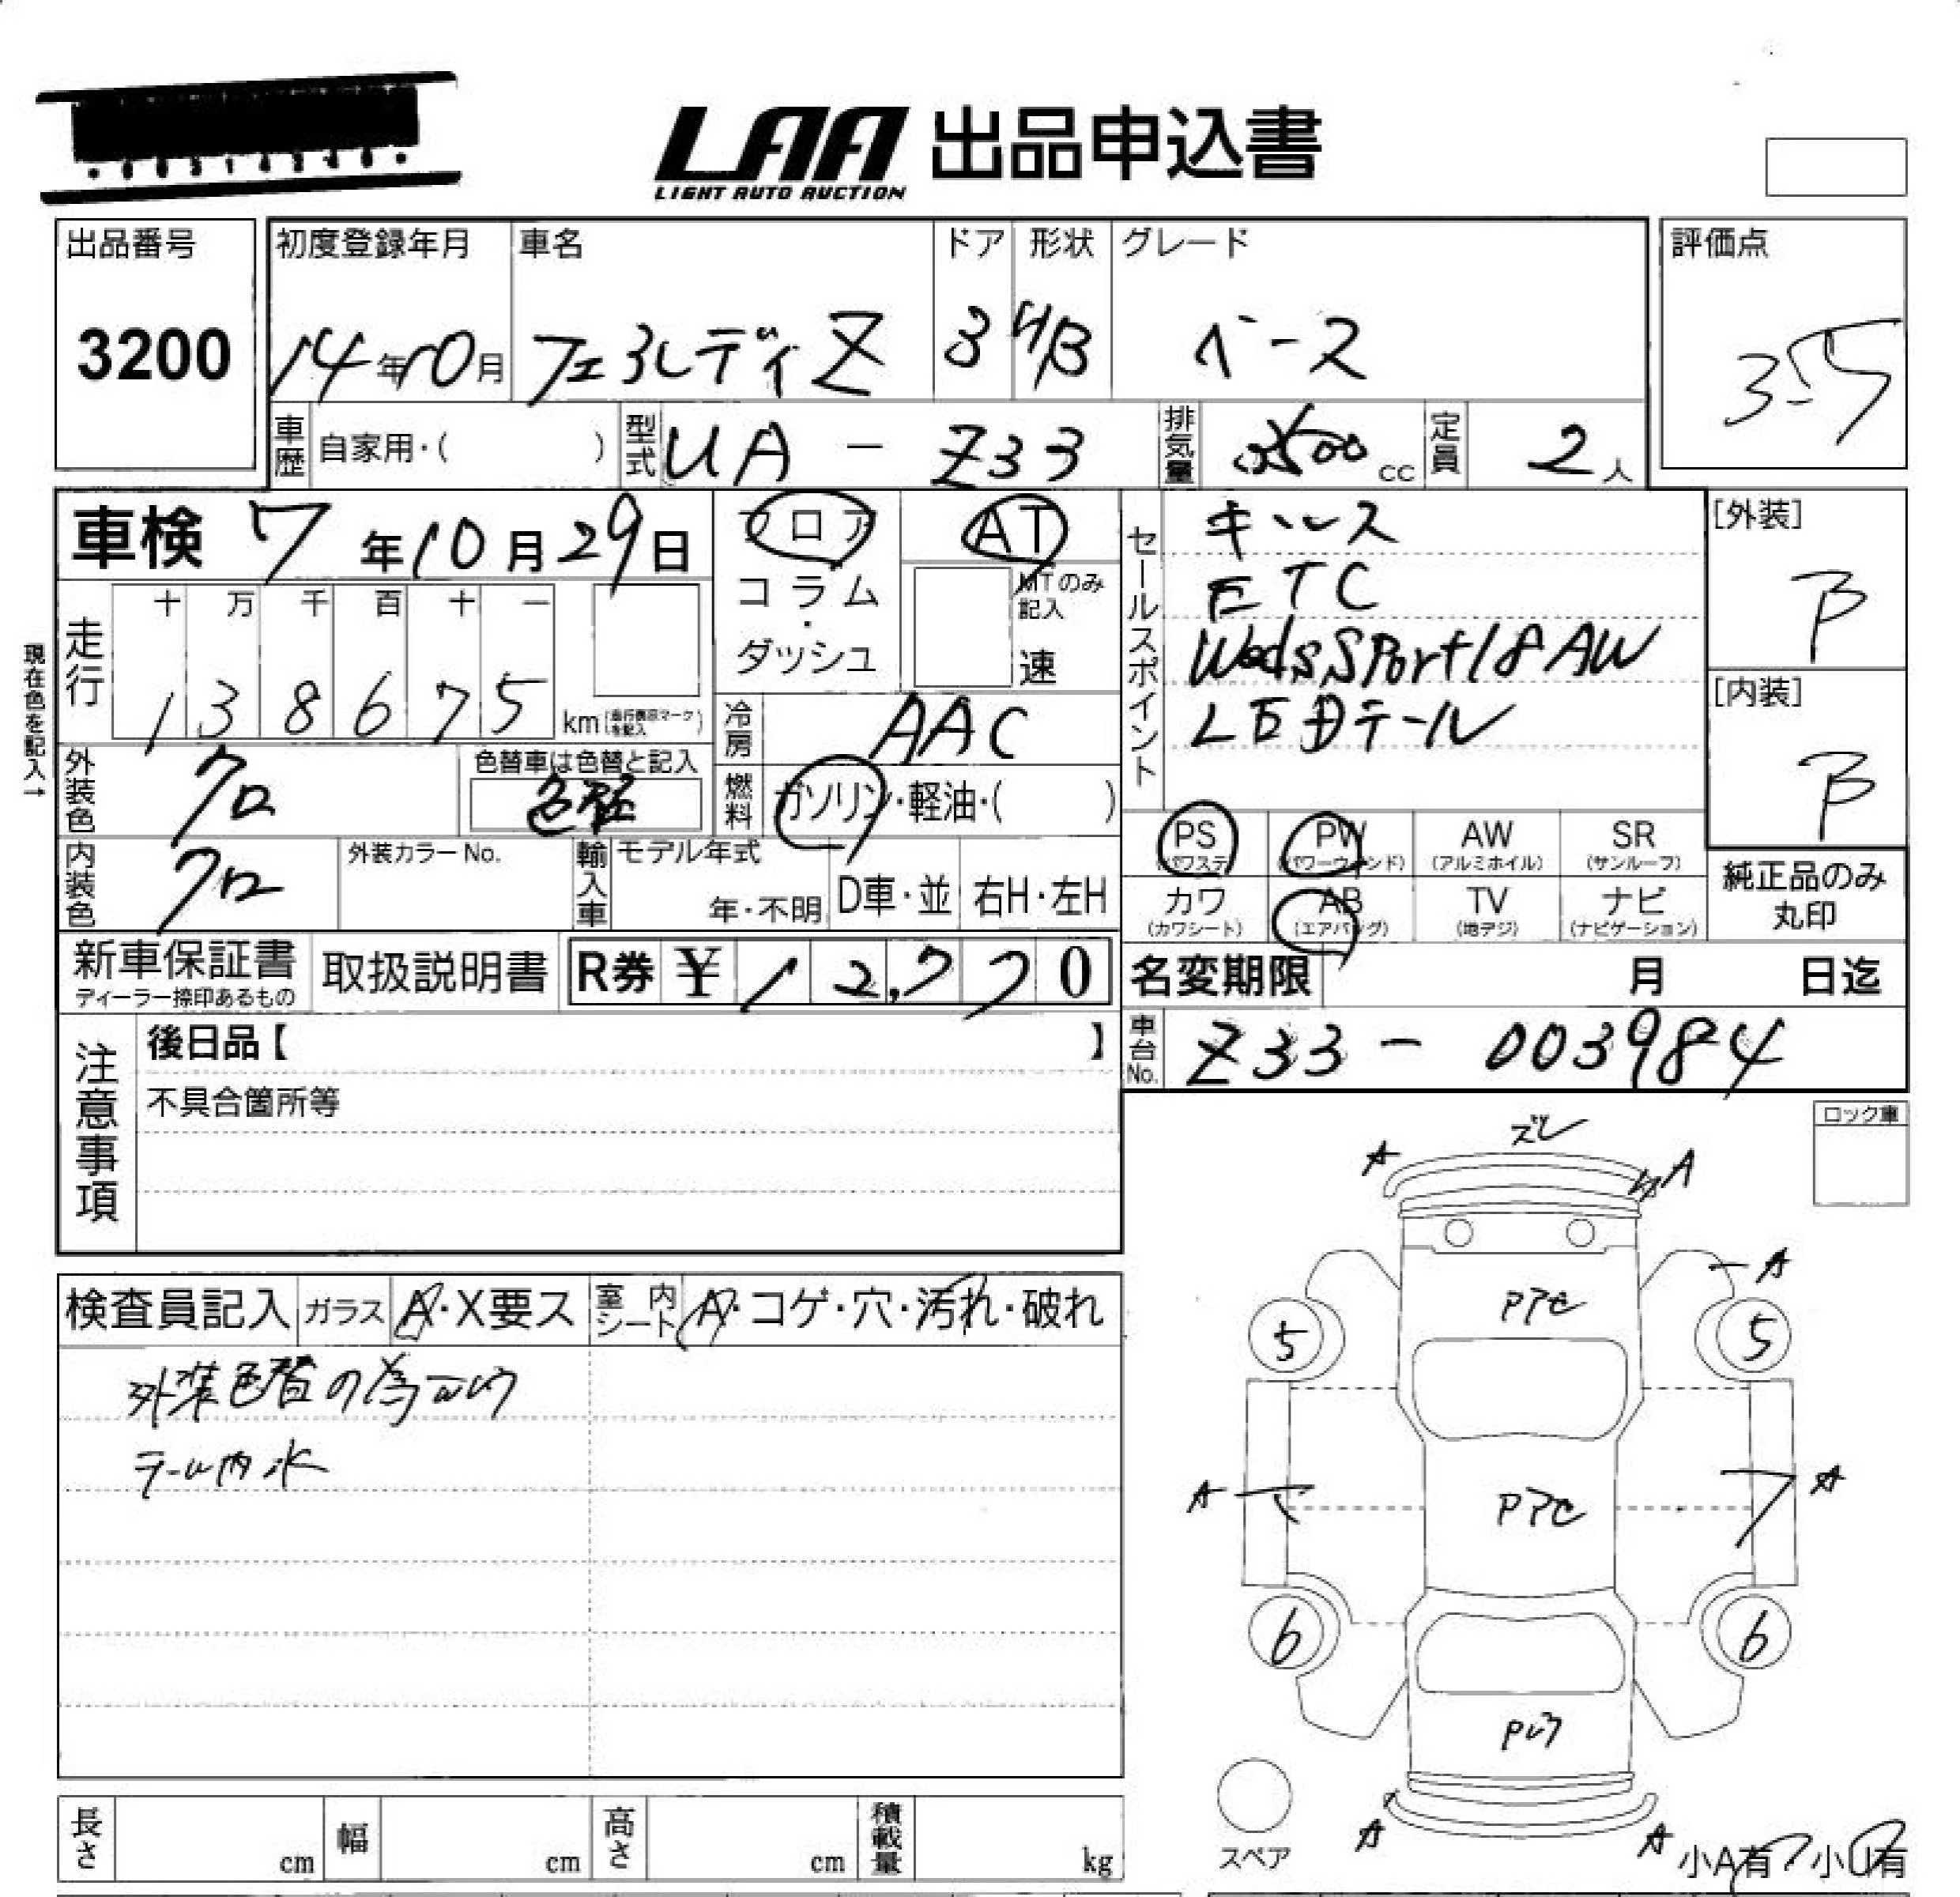 LAA 出品申込書
LIGHT AUTO AUCTION
出品番号
3200
初度登録年月
14年10月
車名
フェアレディZ
ドア
3
形状
H/B
グレード
ベース
評価点
3.5
車歴 自家用・( )
型式 UA - Z33
排気量 3500 cc
定員 2人
車検 7年10月29日
フロア
コラム
・
ダッシュ
AT
MTのみ
記入
速
セールスポイント
キーレス
ETC
WedsSport18AW
LEDテール
[外装]
B
[内装]
B
現在色を記入→
走行
十 万 千 百 十 一
1 3 8 6 7 5 km (走行表示マークを記入)
冷房 AAC
外装色 クロ
色替車は色替と記入
色替
燃料 ガソリン・軽油・( )
内装色 クロ
外装カラーNo.
輸入車 モデル年式
年・不明
D車・並
右H・左H
PS
(パワステ)
PW
(パワーウィンド)
AW
(アルミホイル)
SR
(サンルーフ)
カワ
(カワシート)
AB
(エアバッグ)
TV
(地デジ)
ナビ
(ナビゲーション)
純正品のみ
丸印
新車保証書
ディーラー捺印あるもの
取扱説明書
R券 ¥ 12,770
名変期限 月 日迄
車台No. Z33 - 003984
注意事項
後日品【 】
不具合箇所等
ロック車
検査員記入
ガラス A・X要ス
室内シート A・コゲ・穴・汚れ・破れ
外装色替の為
テール内水
ズレ
A
A
A
5
5
A
A
6
6
スペア
A
A
小A有 小U有
長さ cm
幅 cm
高さ cm
積載量 kg